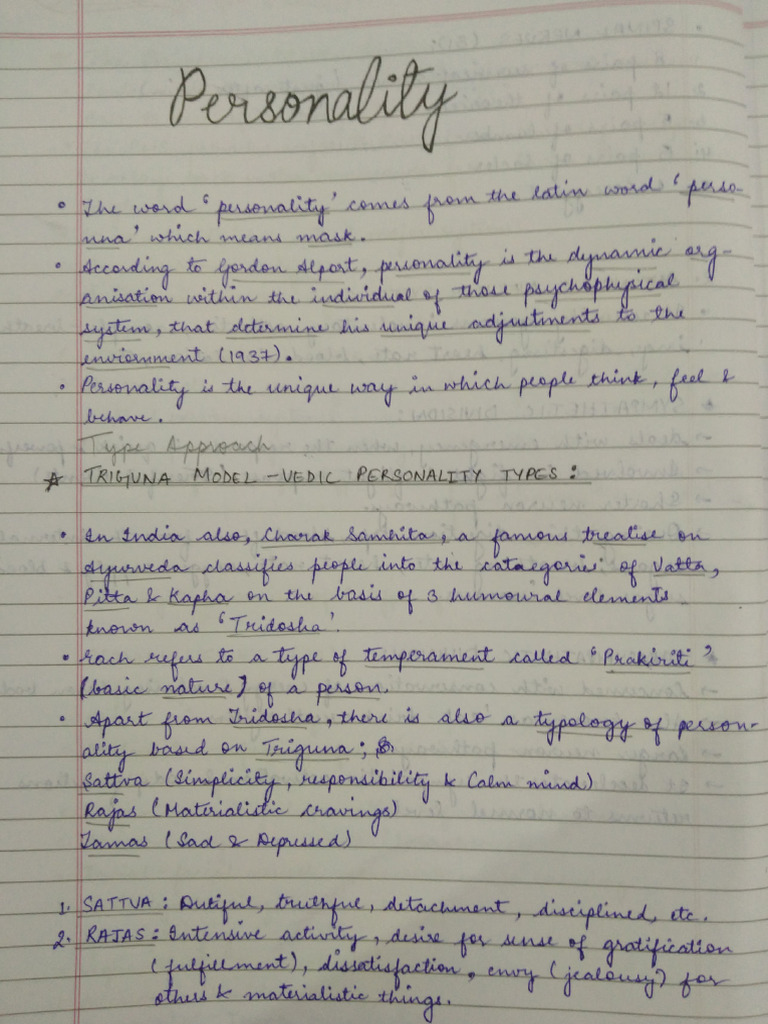 Personality
• The word 'personality' comes from the latin word 'perso-
nna' which means mask.
• According to Gordon Alport, personality is the dynamic org-
anisation within the individual of those psychophysical
system, that determine his unique adjustments to the
enviornment (1937).
• Personality is the unique way in which people think, feel &
behave.
Type Approach
* TRIGUNA MODEL - VEDIC PERSONALITY TYPES:
• In India also, Charak Samhita, a famous treatise on
Ayurveda classifies people into the cataegories of Vatta,
Pitta & Kapha on the basis of 3 humoural elements
known as 'Tridosha'.
• Each refers to a type of temperament called "Prakiriti"
(basic nature) of a person.
• Apart from Tridosha, there is also a typology of person-
ality based on Triguna;
Sattva (Simplicity, responsibility & Calm mind)
Rajas (Materialistic cravings)
Tamas (Sad & Depressed)
1. SATTVA: Dutiful, truthful, detachment, disciplined, etc.
2. RAJAS: Intensive activity, desire for sense of gratification
(fulfillment), dissatisfaction, envy (jealousy) for
others & materialistic things.